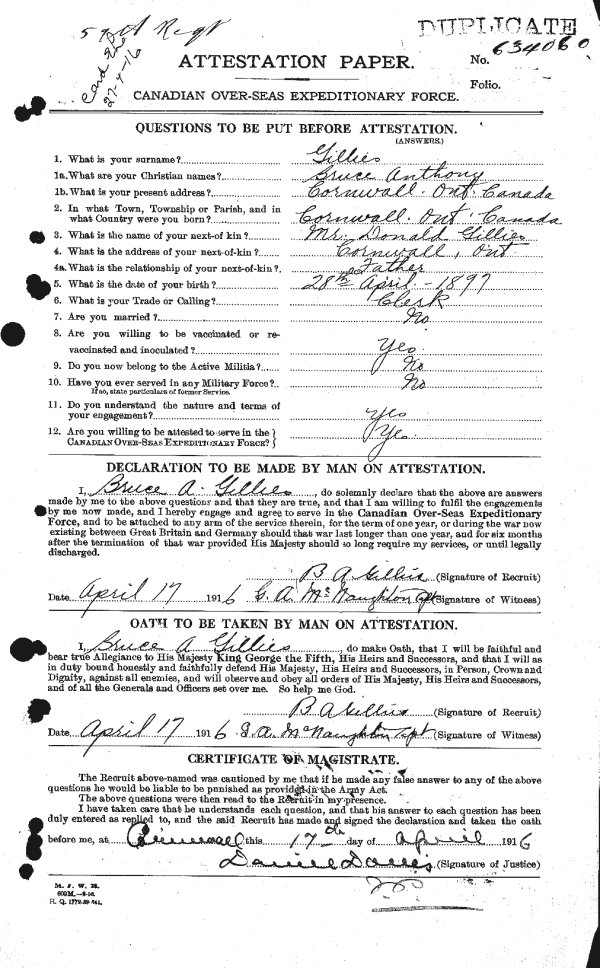 DUPLICATE
59th Regt
No. 634060
Card
27-4-16
ATTESTATION PAPER.
Folio.
CANADIAN OVER-SEAS EXPEDITIONARY FORCE.
QUESTIONS TO BE PUT BEFORE ATTESTATION.
(ANSWERS.)
1. What is your surname? Gillies
1a. What are your Christian names? Bruce Anthony
1b. What is your present address? Cornwall. Ont. Canada
2. In what Town, Township or Parish, and in
what Country were you born? Cornwall. Ont. Canada
3. What is the name of your next-of kin? Mr. Donald Gillies
4. What is the address of your next-of-kin? Cornwall, Ont
4a. What is the relationship of your next-of-kin? Father
5. What is the date of your birth? 28th April - 1897
6. What is your Trade or Calling? Clerk
7. Are you married? No
8. Are you willing to be vaccinated or re-
vaccinated and inoculated? Yes
9. Do you now belong to the Active Militia? No
10. Have you ever served in any Military Force? No
If so, state particulars of former Service.
11. Do you understand the nature and terms of
your engagement? Yes
12. Are you willing to be attested to serve in the
CANADIAN OVER-SEAS EXPEDITIONARY FORCE? Yes
DECLARATION TO BE MADE BY MAN ON ATTESTATION.
I, Bruce A. Gillies, do solemnly declare that the above are answers
made by me to the above questions and that they are true, and that I am willing to fulfil the engagements
by me now made, and I hereby engage and agree to serve in the Canadian Over-Seas Expeditionary
Force, and to be attached to any arm of the service therein, for the term of one year, or during the war now
existing between Great Britain and Germany should that war last longer than one year, and for six months
after the termination of that war provided His Majesty should so long require my services, or until legally
discharged.
B A Gillies (Signature of Recruit)
Date April 17 1916 G. A. McNaughton Cpt (Signature of Witness)
OATH TO BE TAKEN BY MAN ON ATTESTATION.
I, Bruce A Gillies, do make Oath, that I will be faithful and
bear true Allegiance to His Majesty King George the Fifth, His Heirs and Successors, and that I will as
in duty bound honestly and faithfully defend His Majesty, His Heirs and Successors, in Person, Crown and
Dignity, against all enemies, and will observe and obey all orders of His Majesty, His Heirs and Successors,
and of all the Generals and Officers set over me. So help me God.
B A Gillies (Signature of Recruit)
Date April 17 1916 G. A. McNaughton Cpt (Signature of Witness)
CERTIFICATE OF MAGISTRATE.
The Recruit above-named was cautioned by me that if he made any false answer to any of the above
questions he would be liable to be punished as provided in the Army Act.
The above questions were then read to the Recruit in my presence.
I have taken care that he understands each question, and that his answer to each question has been
duly entered as replied to, and the said Recruit has made and signed the declaration and taken the oath
before me, at Cornwall this 17th day of April 1916
Daniel Davis (Signature of Justice)
M. F. W. 23.
H. Q. 1772-39-841.